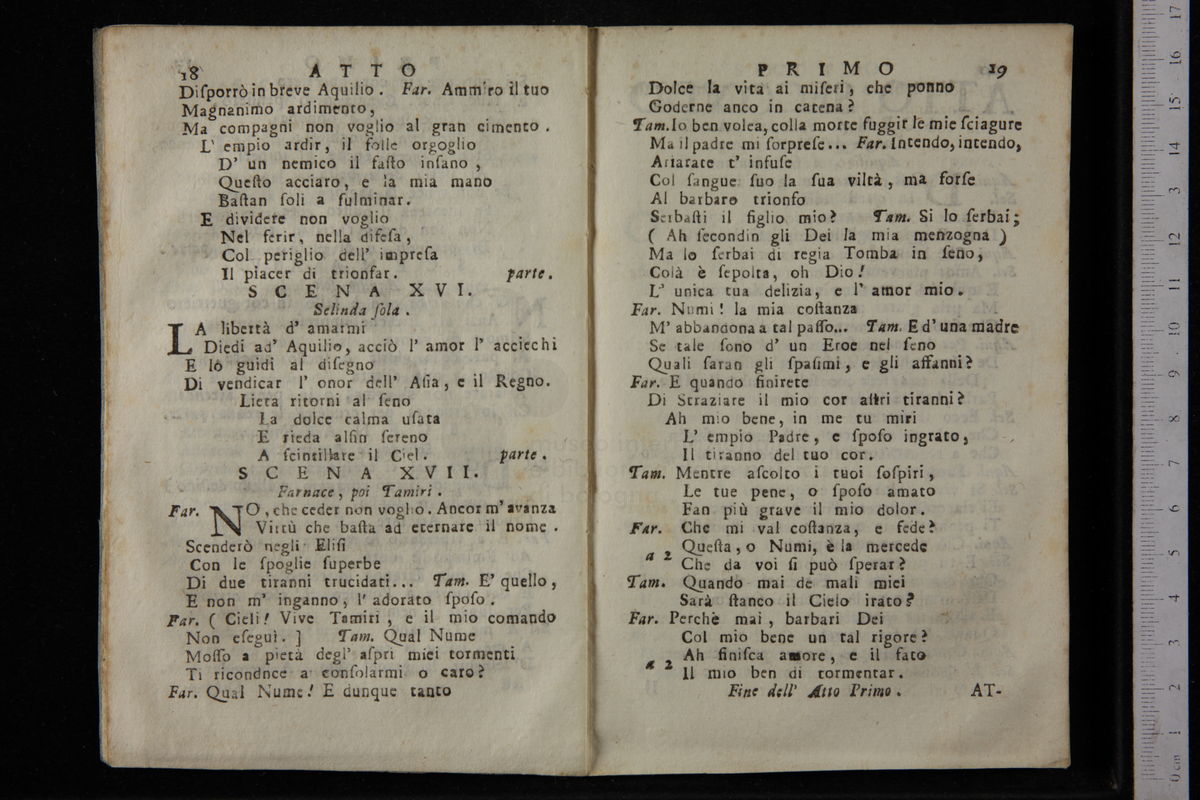 18 ATTO
Diſporrò in breve Aquilio. Far. Ammiro il tuo
Magnanimo ardimento,
Ma compagni non voglio al gran cimento.
L' empio ardir, il folle orgoglio
D' un nemico il faſto inſano,
Queſto acciaro, e la mia mano
Baſtan ſoli a fulminar.
E dividere non voglio
Nel ferir, nella difeſa,
Col periglio dell' impreſa
Il piacer di trionfar. parte.
SCENA XVI.
Selinda ſola.
LA libertà d' amarmi
Diedi ad' Aquilio, acciò l' amor l' acciechi
E lò guidi al diſegno
Di vendicar l' onor dell' Aſia, e il Regno.
Lieta ritorni al ſeno
La dolce calma uſata
E rieda alfin ſereno
A ſcintillare il Ciel. parte.
SCENA XVII.
Farnace, poi Tamiri.
Far. NO, che ceder non voglio. Ancor m' avanza
Virtù che baſta ad eternare il nome.
Scenderò negli Eliſi
Con le ſpoglie ſuperbe
Di due tiranni trucidati... Tam. E' quello,
E non m' inganno, l' adorato ſpoſo.
Far. ( Cieli! Vive Tamiri, e il mio comando
Non eſeguì. ] Tam. Qual Nume
Moſſo a pietà degl' aſpri miei tormenti
Ti ricondnce a conſolarmi o caro?
Far. Qual Nume! E dunque tanto
PRIMO 19
Dolce la vita ai miſeri, che ponno
Goderne anco in catena?
Tam. Io ben volea, colla morte fuggir le mie ſciagure
Ma il padre mi ſorpreſe... Far. Intendo, intendo,
Artarate t' infuſe
Col ſangue ſuo la ſua viltà, ma forſe
Al barbaro trionfo
Serbaſti il figlio mio? Tam. Si lo ſerbai;
( Ah ſecondin gli Dei la mia menzogna )
Ma lo ſerbai di regia Tomba in ſeno,
Colà è ſepolta, oh Dio!
L' unica tua delizia, e l' amor mio.
Far. Numi! la mia coſtanza
M' abbandona a tal paſſo... Tam. E d' una madre
Se tale ſono d' un Eroe nel ſeno
Quali ſaran gli ſpaſimi, e gli affanni?
Far. E quando finirete
Di Straziare il mio cor aſtri tiranni?
Ah mio bene, in me tu miri
L' empio Padre, e ſpoſo ingrato,
Il tiranno del tuo cor.
Tam. Mentre aſcolto i tuoi ſoſpiri,
Le tue pene, o ſpoſo amato
Fan più grave il mio dolor.
Far. Che mi val coſtanza, e fede?
a 2 Queſta, o Numi, è la mercede
Che da voi ſi può ſperar?
Tam. Quando mai de mali miei
Sarà ſtanco il Cielo irato?
Far. Perchè mai, barbari Dei
Col mio bene un tal rigore?
a 2 Ah finiſca amore, e il fato
Il mio ben di tormentar.
Fine dell' Atto Primo. AT-